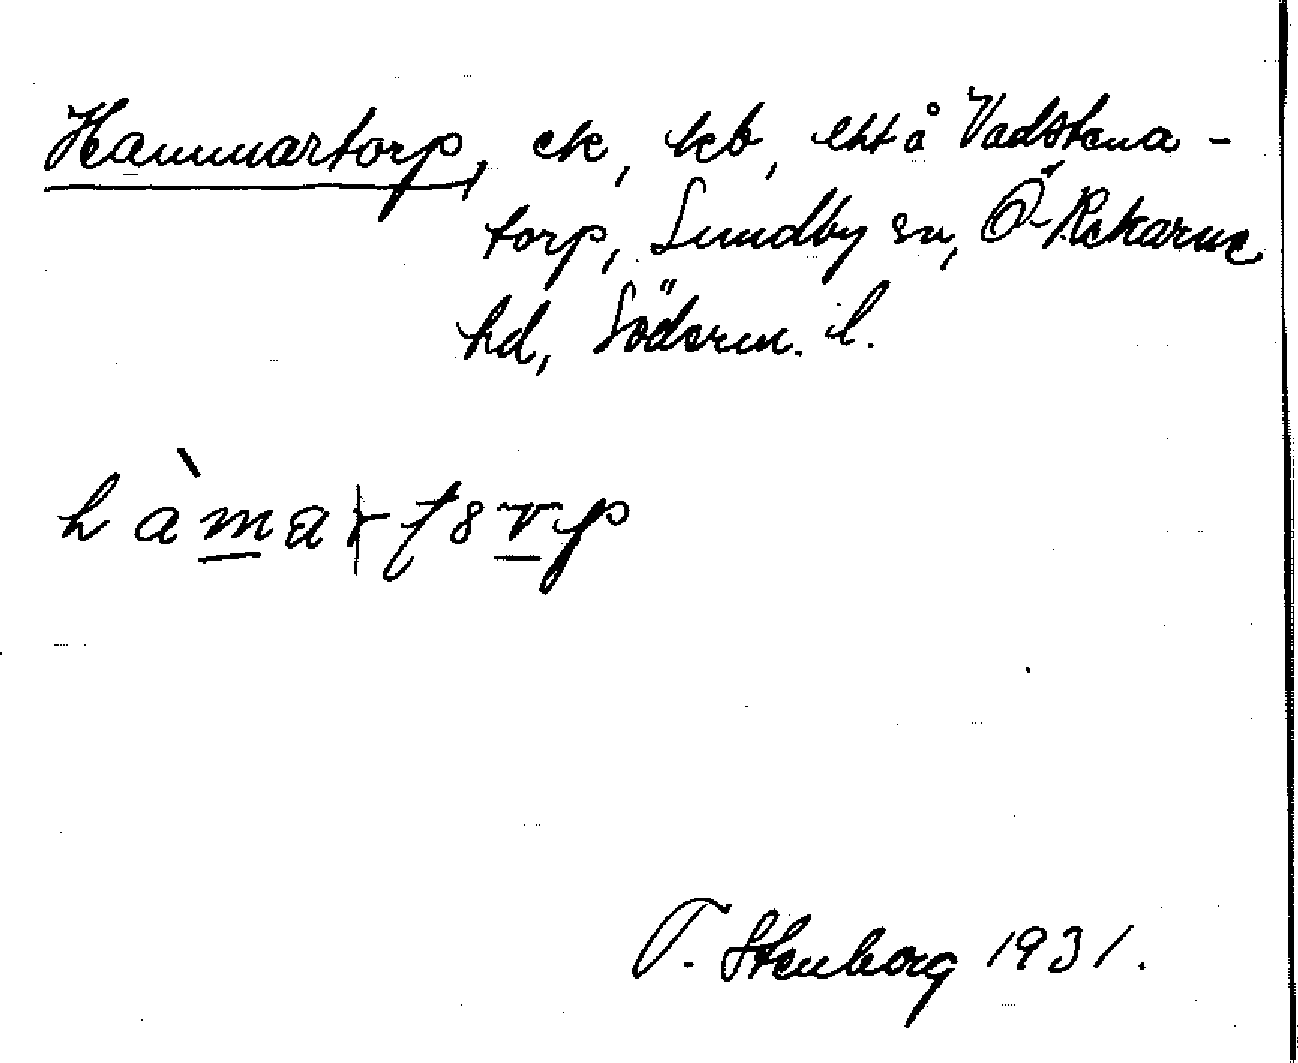 Hammartorp, ek, kb, ehl å Vadstena-
torp, Sundby sn, Ö-Rekarne
hd, Söderm. l.
hàmartȣrp
T. Stenborg 1931.